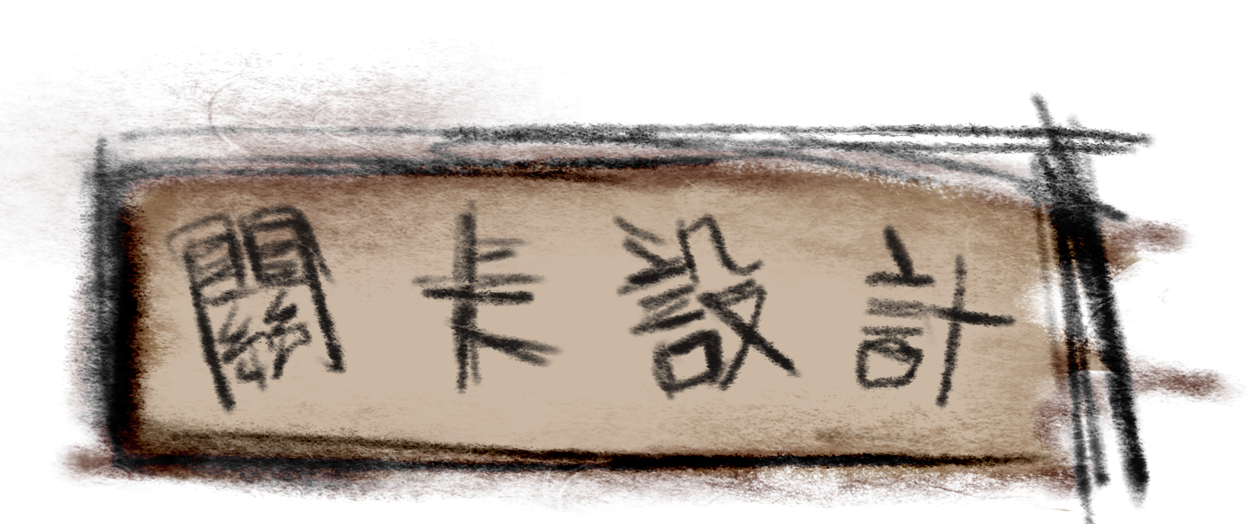 關卡設計